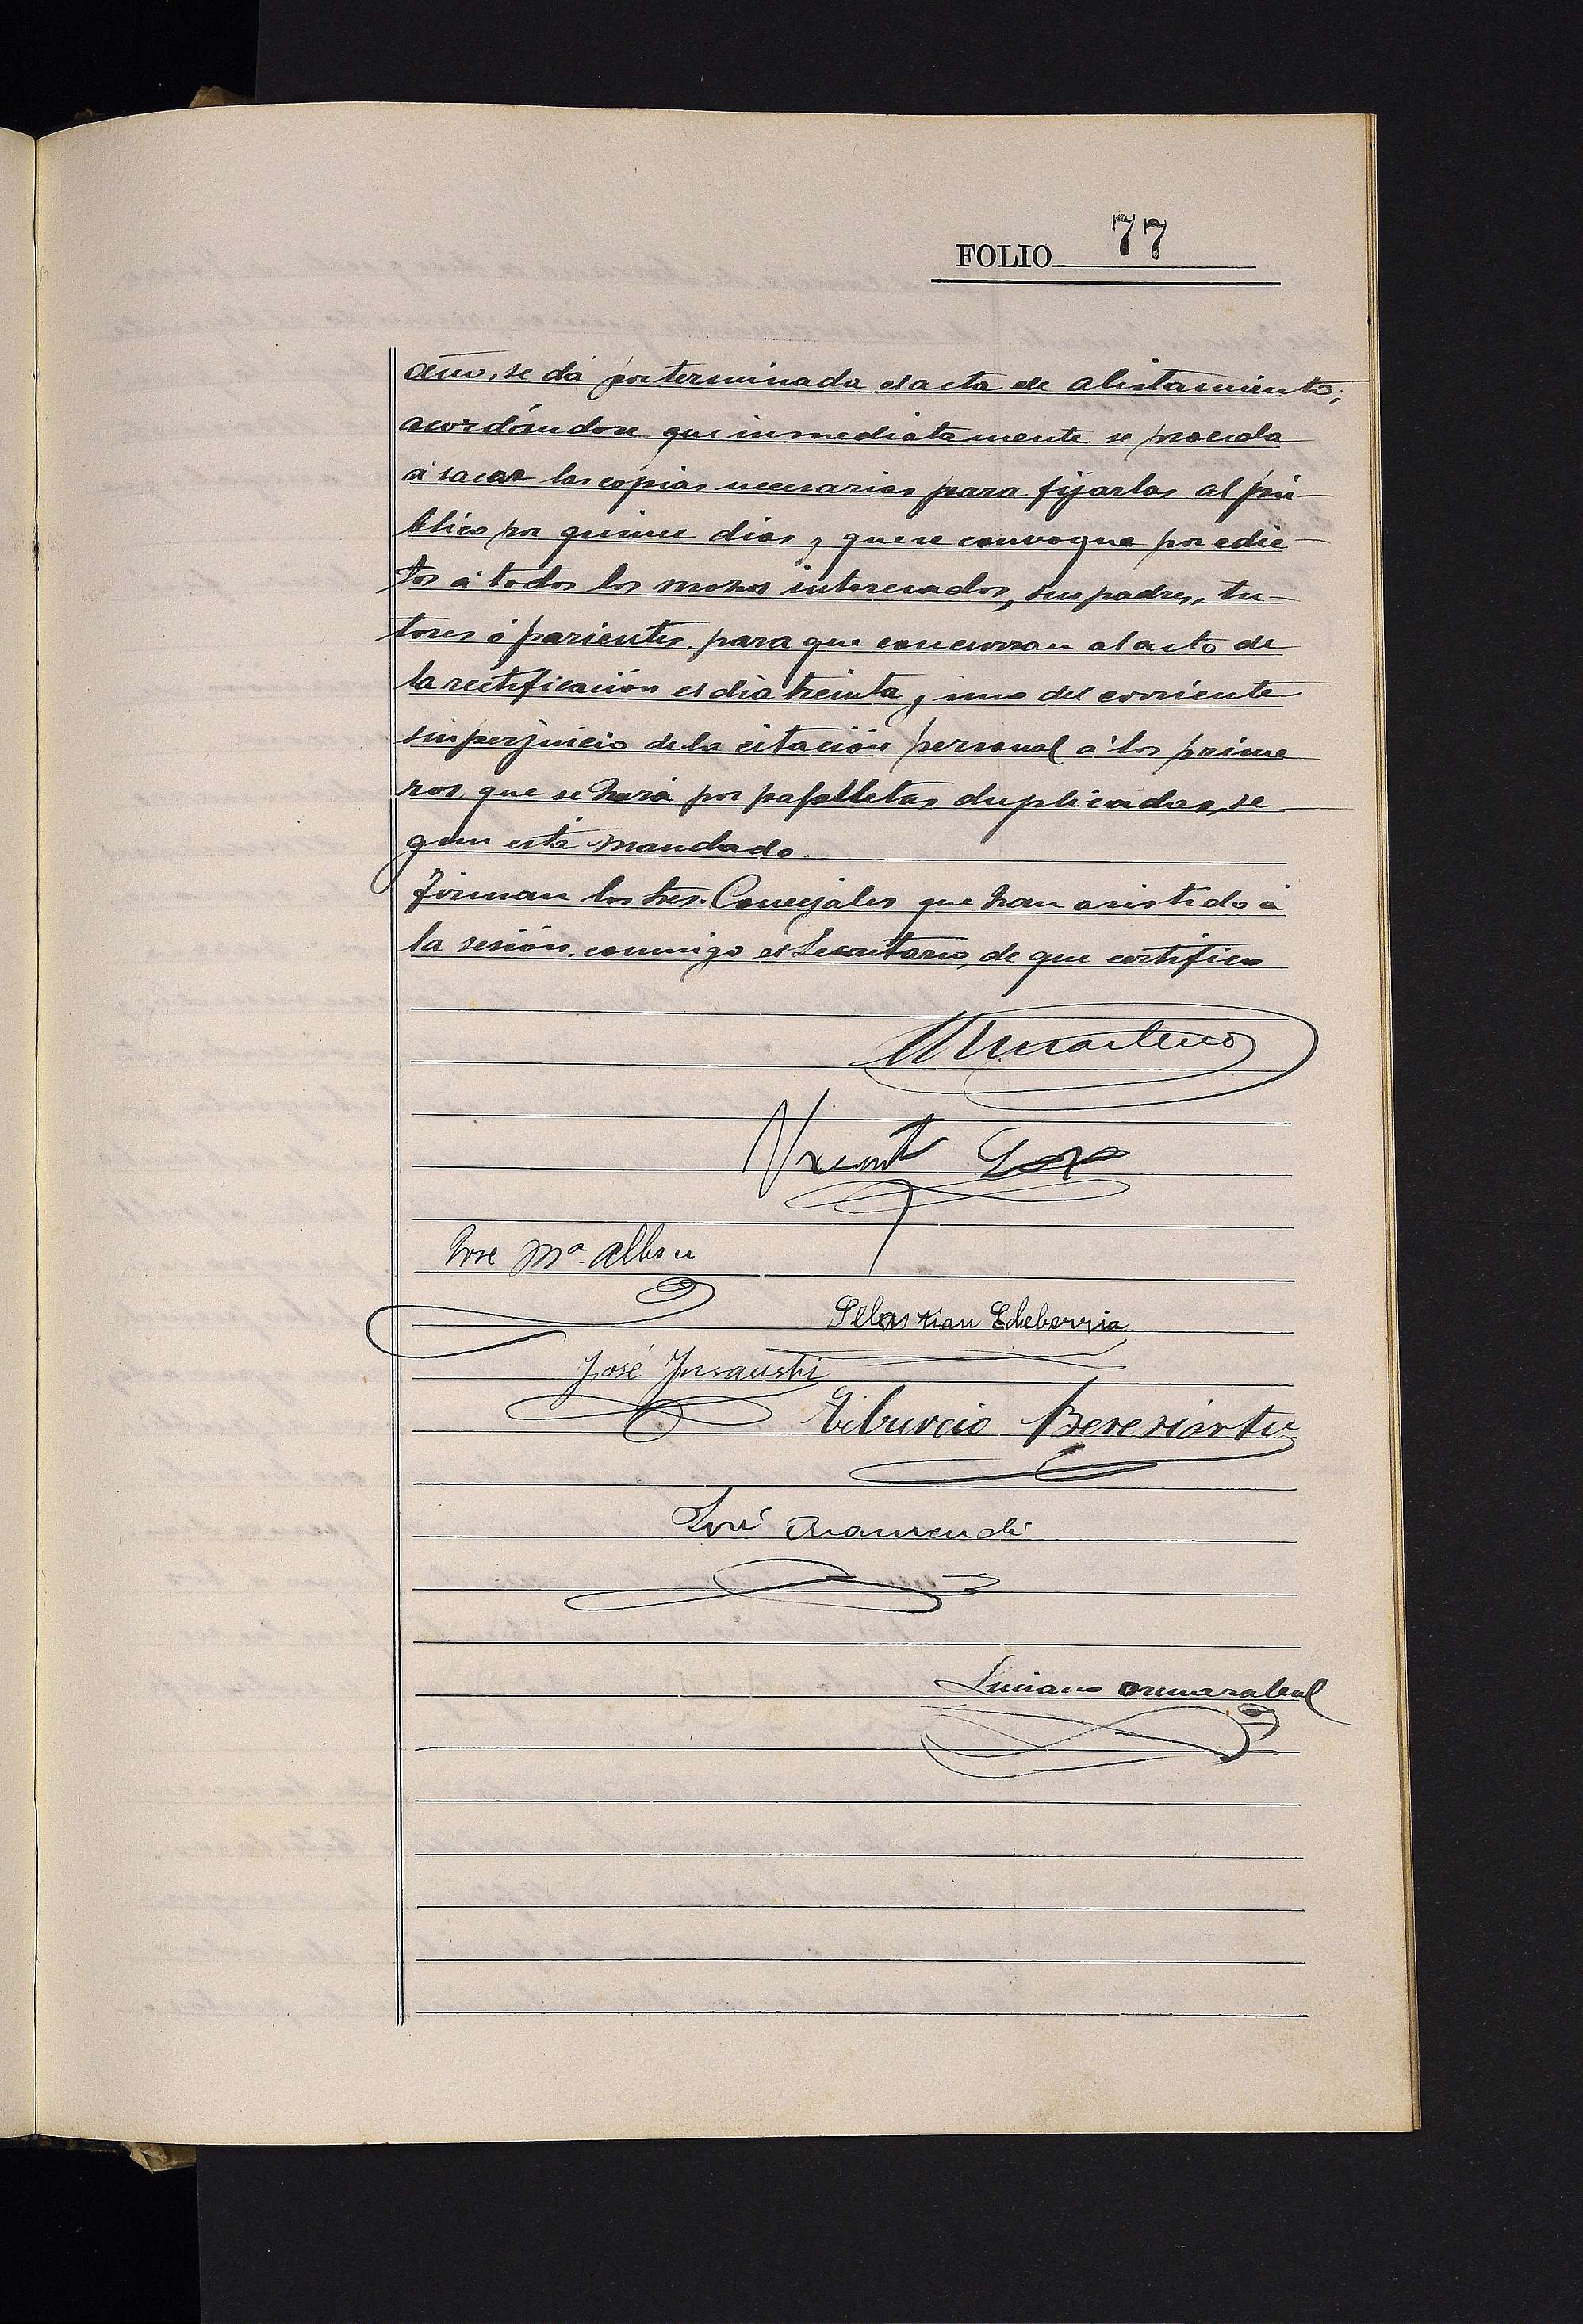 FOLIO 77
año, se dá por terminada el acta de alistamiento;
acordándose que inmediatamente se proceda
á sacar las copias necesarias para fijarlas al pú-
blico por quince dias y que se convoque por edic-
tos á todos los mozos interesados, sus padres, tu-
tores ó parientes para que concurran al acto de
la rectificación el dia treinta y uno del corriente
sin perjuicio de la citación personal á los prime
ros, que se hará por papelletas duplicadas, se
gun está mandado.
Firman los Sres. Concejales que han asistido á
la sesión conmigo el Secretario, de que certifico
Vicente
José Mª Albisu
Sebastian Echebarria
José Insausti
Tiburcio Bereciartu
José Aramendi
Luciano Ormazabal